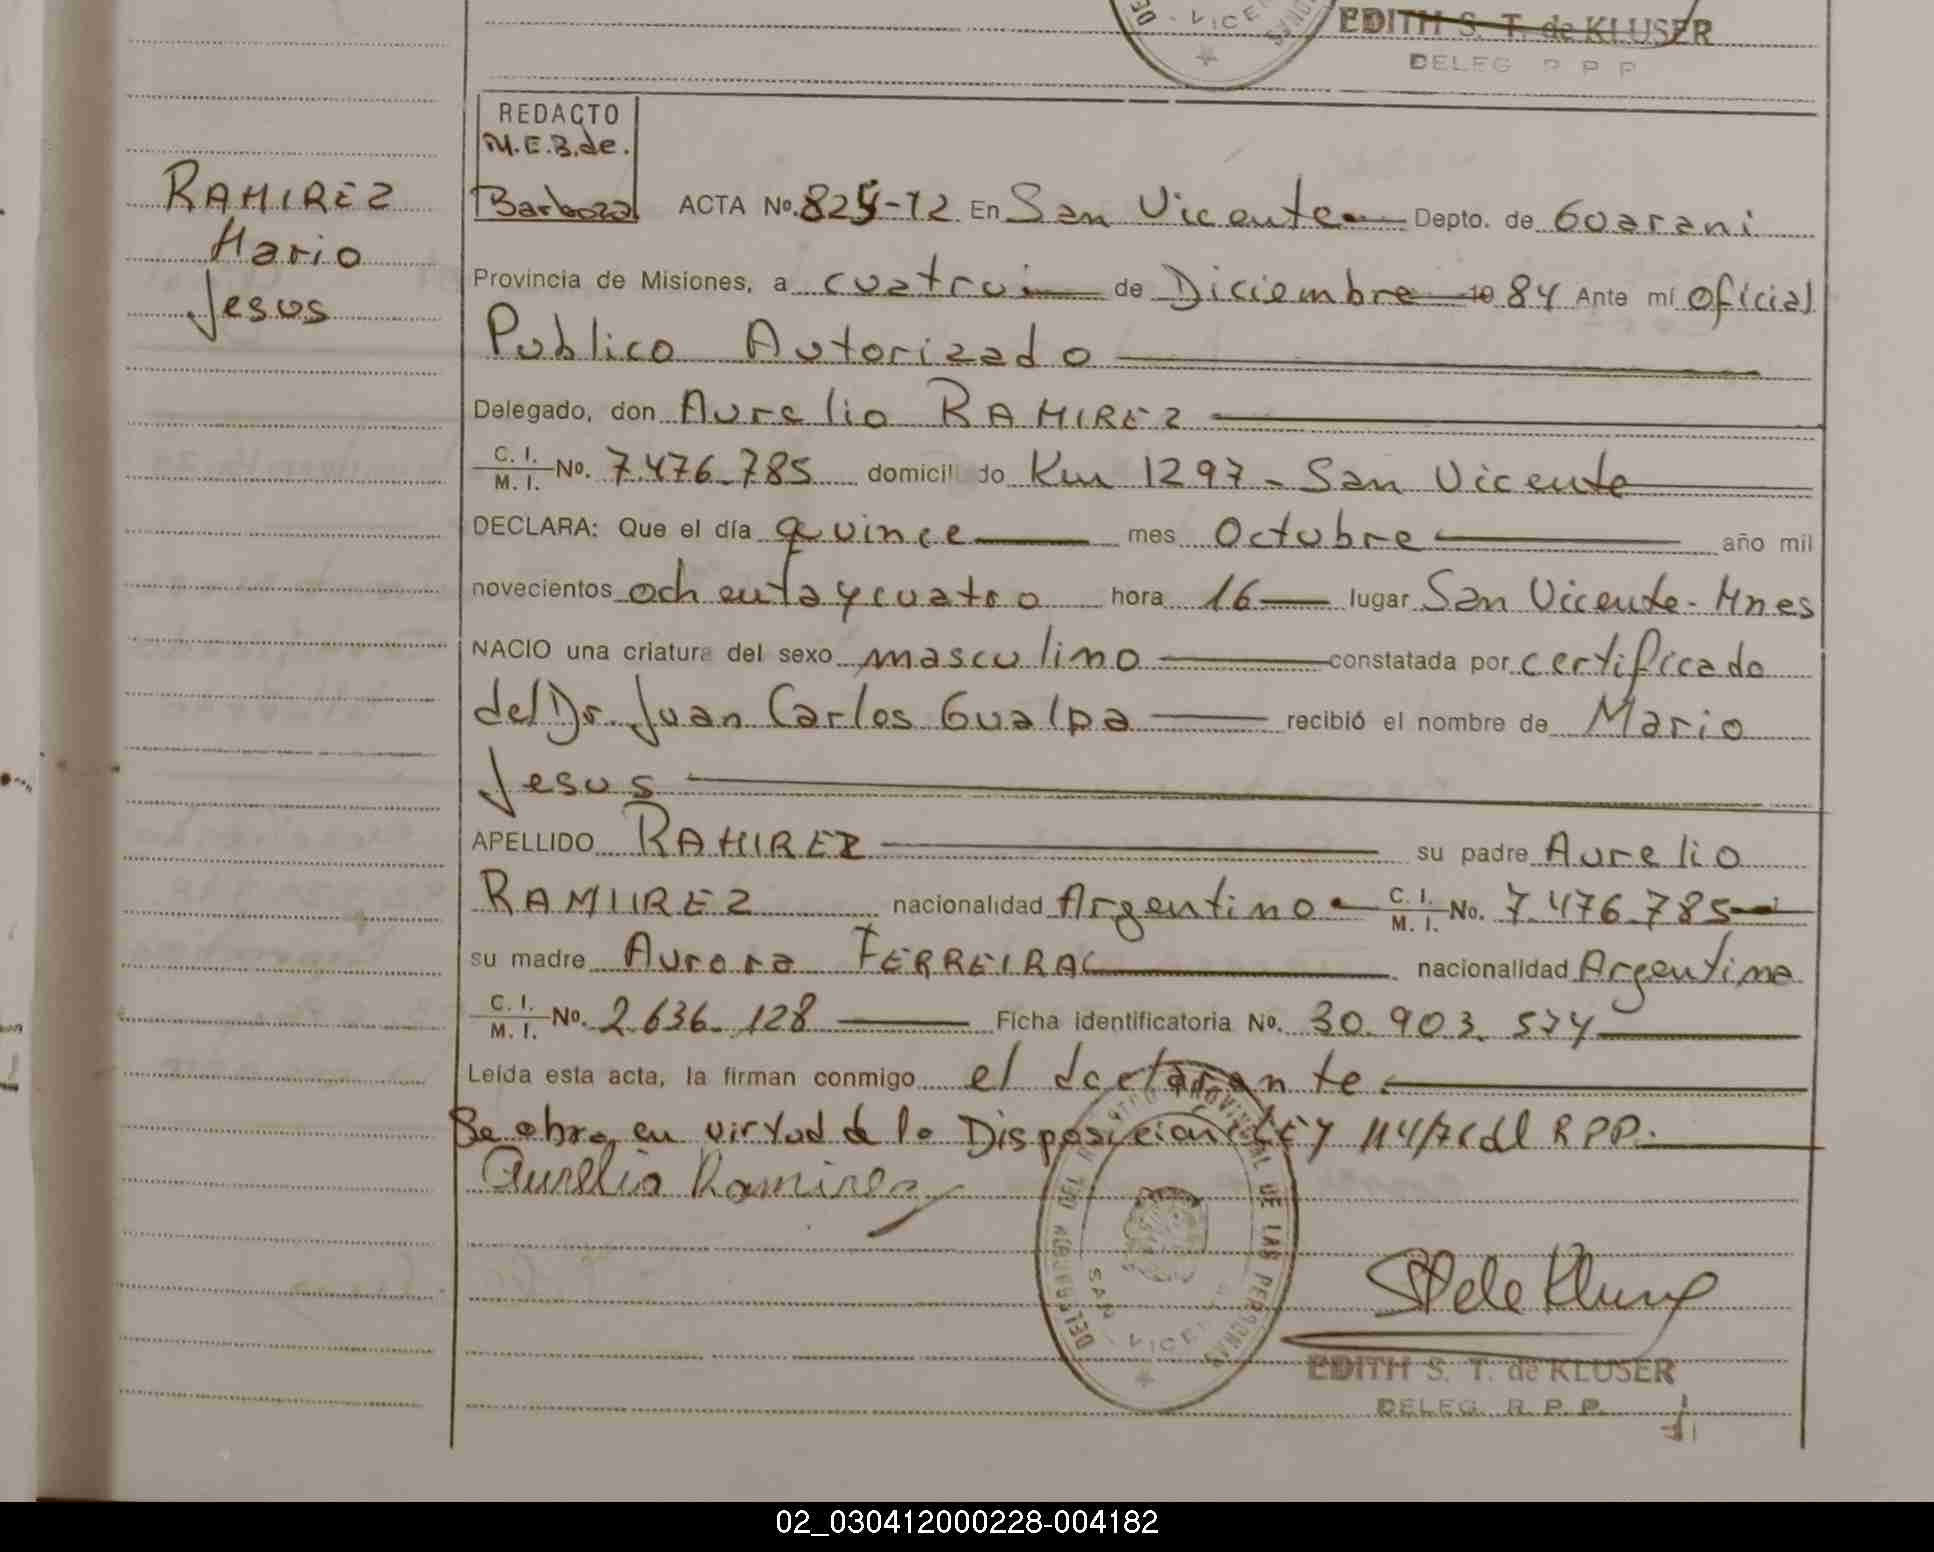 EDITH S. T. de KLUSER
DELEG R P P
REDACTO
M.E.B. de.
Barboza
RAMIREZ
Mario
Jesus
ACTA No. 825-12 En San Vicente Depto. de Guarani
Provincia de Misiones, a cuatro de Diciembre 19 84 Ante mí oficial
Publico Autorizado
Delegado, don Aurelio RAMIREZ
C. I.
M. I. No. 7.476.785 domicili do Km 1297 - San Vicente
DECLARA: Que el día quince mes Octubre año mil
novecientos ochenta y cuatro hora 16 lugar San Vicente - Mnes
NACIO una criatura del sexo masculino constatada por certificado
del Dr. Juan Carlos Gualpa recibió el nombre de Mario
Jesus
APELLIDO RAMIREZ su padre Aurelio
RAMIIREZ nacionalidad Argentino C. I.
M. I. No. 7.476.785
su madre Aurora FERREIRA nacionalidad Argentina
C. I.
M. I. No. 2.636.128 Ficha identificatoria No. 30.903.574
Leída esta acta, la firman conmigo el declarante
Se obra en virtud de la Disposición del RPP.
Aurelio Ramirez
DELEGACION DEL REGISTRO PROVINCIAL DE LAS PERSONAS
SAN VICENTE
EDITH S. T. de KLUSER
DELEG. R. P. P.
02_030412000228-004182